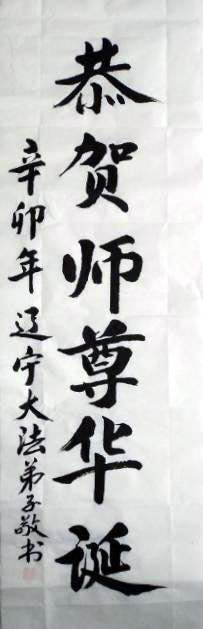 恭贺师尊华诞
辛卯年 辽宁大法弟子敬书